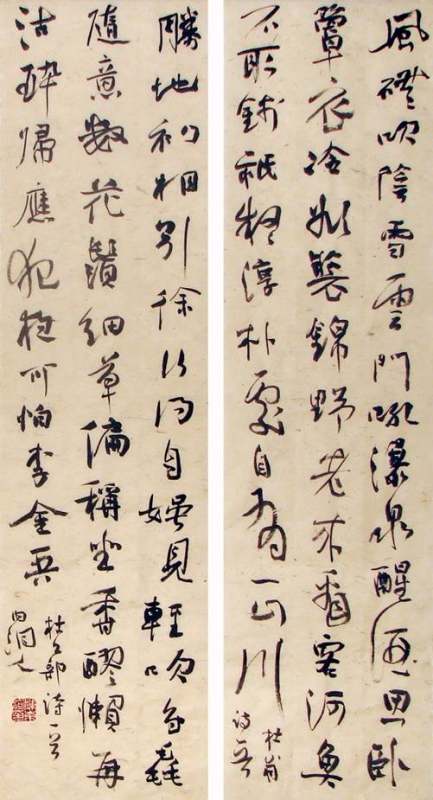 風磴吹陰雪雲門吼瀑泉醒酒思臥
簟衣冷欲裝錦野老來看客河魚
不取錢祇疑淳朴處自有一山川
杜甫
詩一首
勝地初相引徐行得自娛見輕吹鳥毳
隨意數花鬚細草偏稱坐香醪懶再
沽醉歸應犯夜可怕李金吾
杜工部詩一首